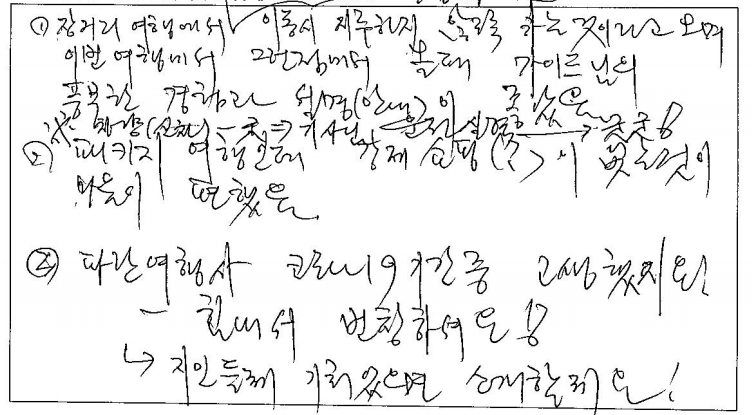 ① 장거리 여행에서 이동시 지루하지 않도록 하는 것이라고 보며
이번 여행에서 그런점에서 볼때 가이드님의
풍부한 경험과 설명(안내)이 좋았음
차량(신차) - 기사님 운전 실력 → 굿굿!
② 패키지 여행인데 강제 쇼핑(?)이 없는것이
마음이 편했음
② 파란여행사 코로나19 기간중 고생했지요!
- 힘내서 번창하셔요!
↳ 지인들께 기회있으면 소개할께요!